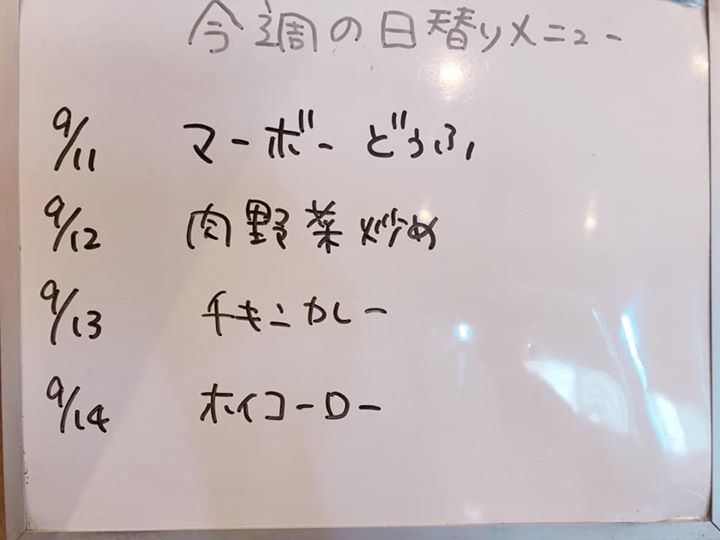 今週の日替りメニュー
9/11 マーボーどうふ
9/12 肉野菜炒め
9/13 チキンカレー
9/14 ホイコーロー